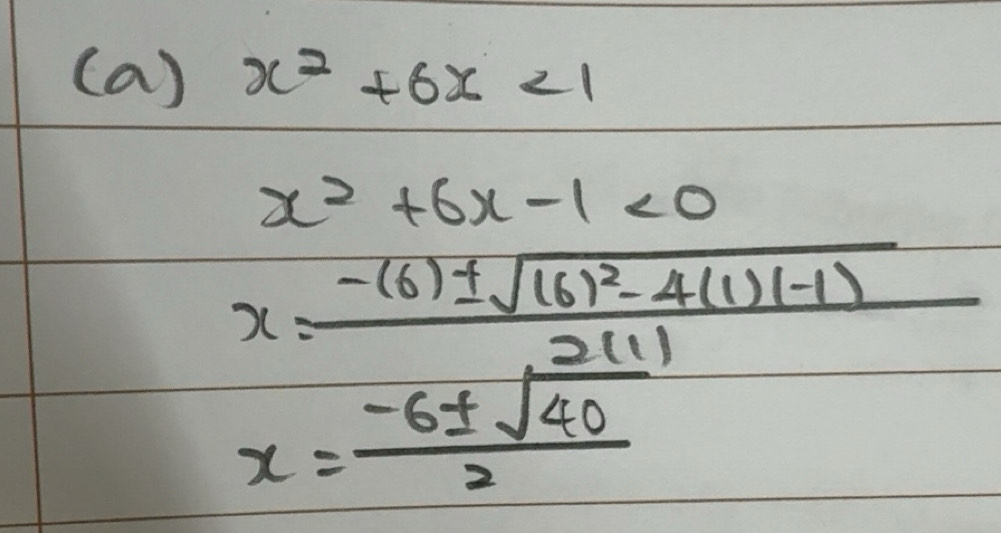 (a) x² + 6x < 1
x² + 6x - 1 < 0
x = \frac{-(6) ± \sqrt{(6)² - 4(1)(-1)}}{2(1)}
x = \frac{-6 ± \sqrt{40}}{2}